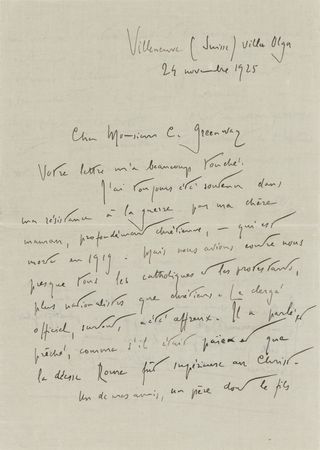 Villeneuve (Suisse) villa Olga
24 novembre 1925
Cher Monsieur C. Greenway
Votre lettre m'a beaucoup touché.
J'ai toujours été soutenu dans
ma résistance à la guerre par ma chère
maman, profondément chrétienne, – qui est
morte en 1919. Mais nous avions contre nous
presque tous les catholiques et les protestants,
plus nationalistes que chrétiens. Le clergé
officiel, surtout, a été affreux. Il a parlé,
prêché, comme s'il était païen et que
la déesse Rome fût supérieure au Christ.
Un de mes amis, un père dont le fils